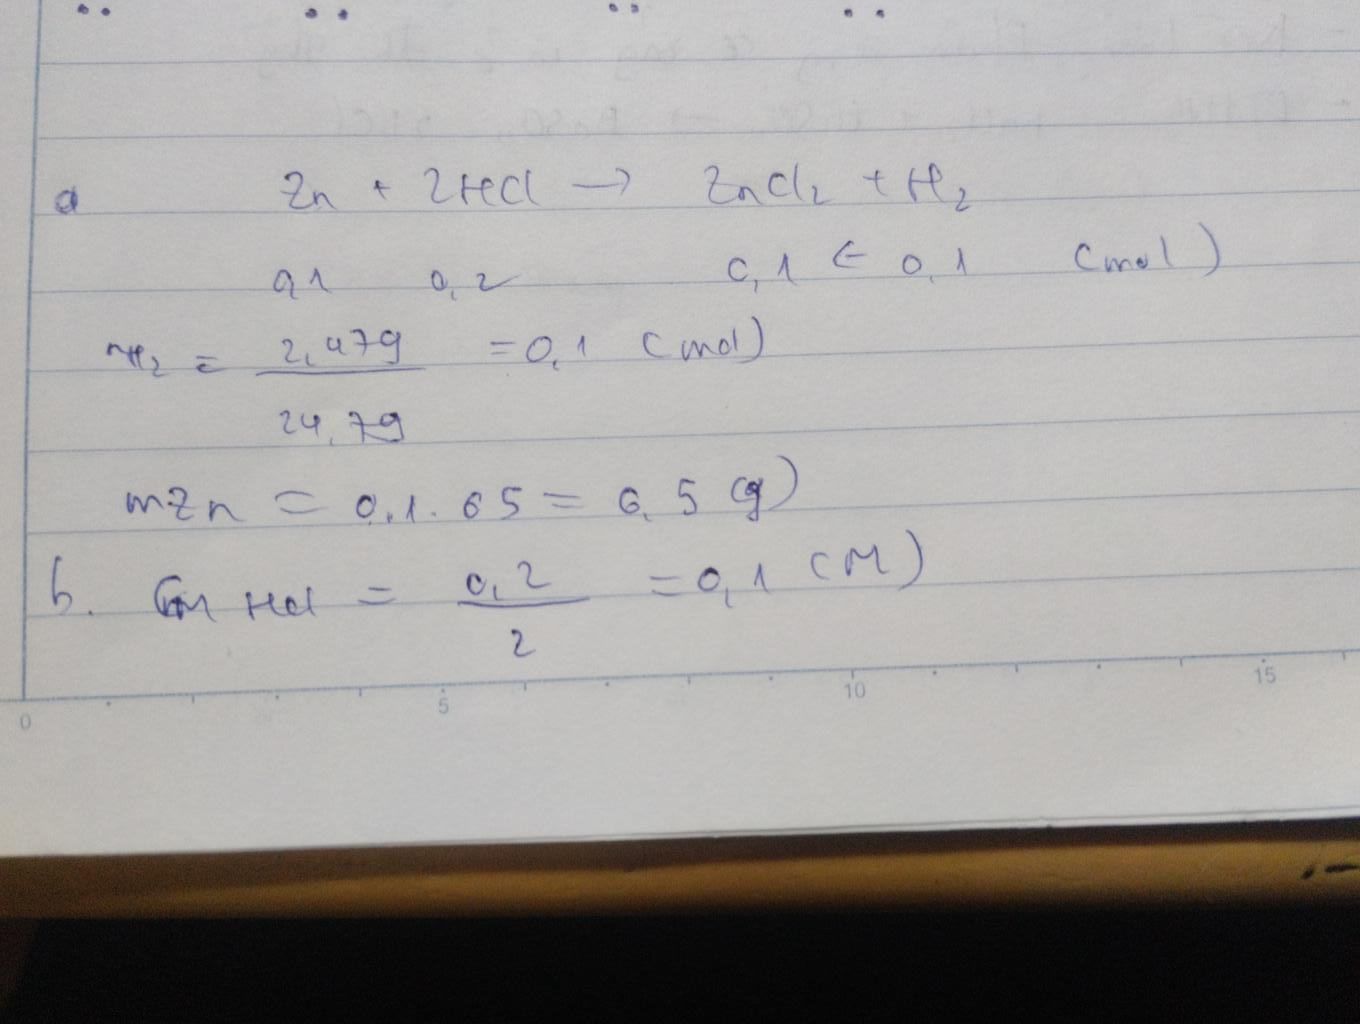 a Zn + 2HCl → ZnCl₂ + H₂
0,1 0,2 0,1 ← 0,1 (mol)
nH₂ = 2,479 / 24,79 = 0,1 (mol)
mZn = 0,1 . 65 = 6,5 (g)
b. CM HCl = 0,2 / 2 = 0,1 (M)
0 5 10 15